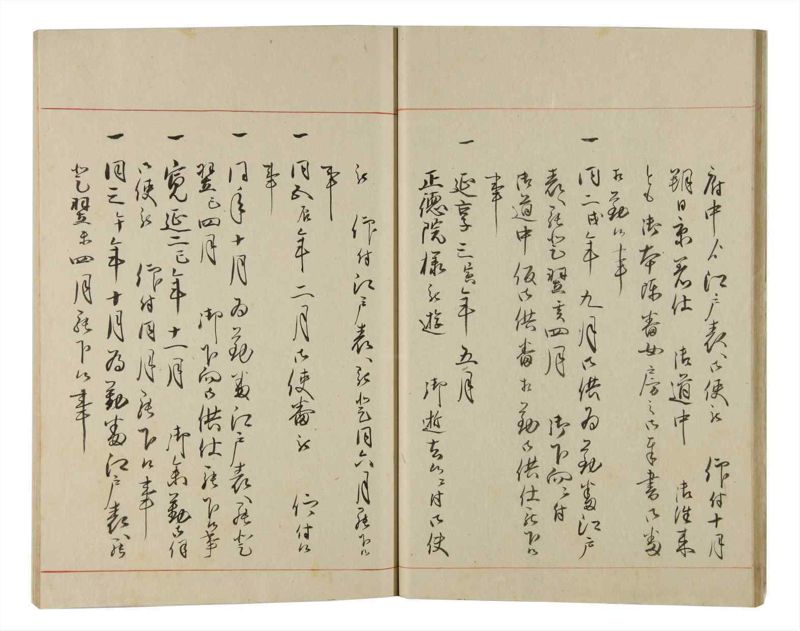 府中ゟ江戸表江御使被 仰付十月
朔日京着仕 御道中 御往来
とも 御本陣番
相勤候事
一 同二戌年九月御供為勤番江戸
表江罷登翌亥四月 御下向ニ付
御道中 御供番相勤御供仕罷下候
事
一 延享三寅年五月
正徳院様被遊 御逝去候ニ付御使
被 仰付江戸表江罷登同六月罷下候
事
一 同五辰年二月御使番被 仰付候
事
一 同年十月為勤番江戸表江罷登
翌巳四月 御下向御供仕罷下候事
一 寛延二巳年十一月 御参勤御
御使被 仰付同月罷下候事
一 同三午年十月為勤番江戸表江罷
登翌未四月罷下候事